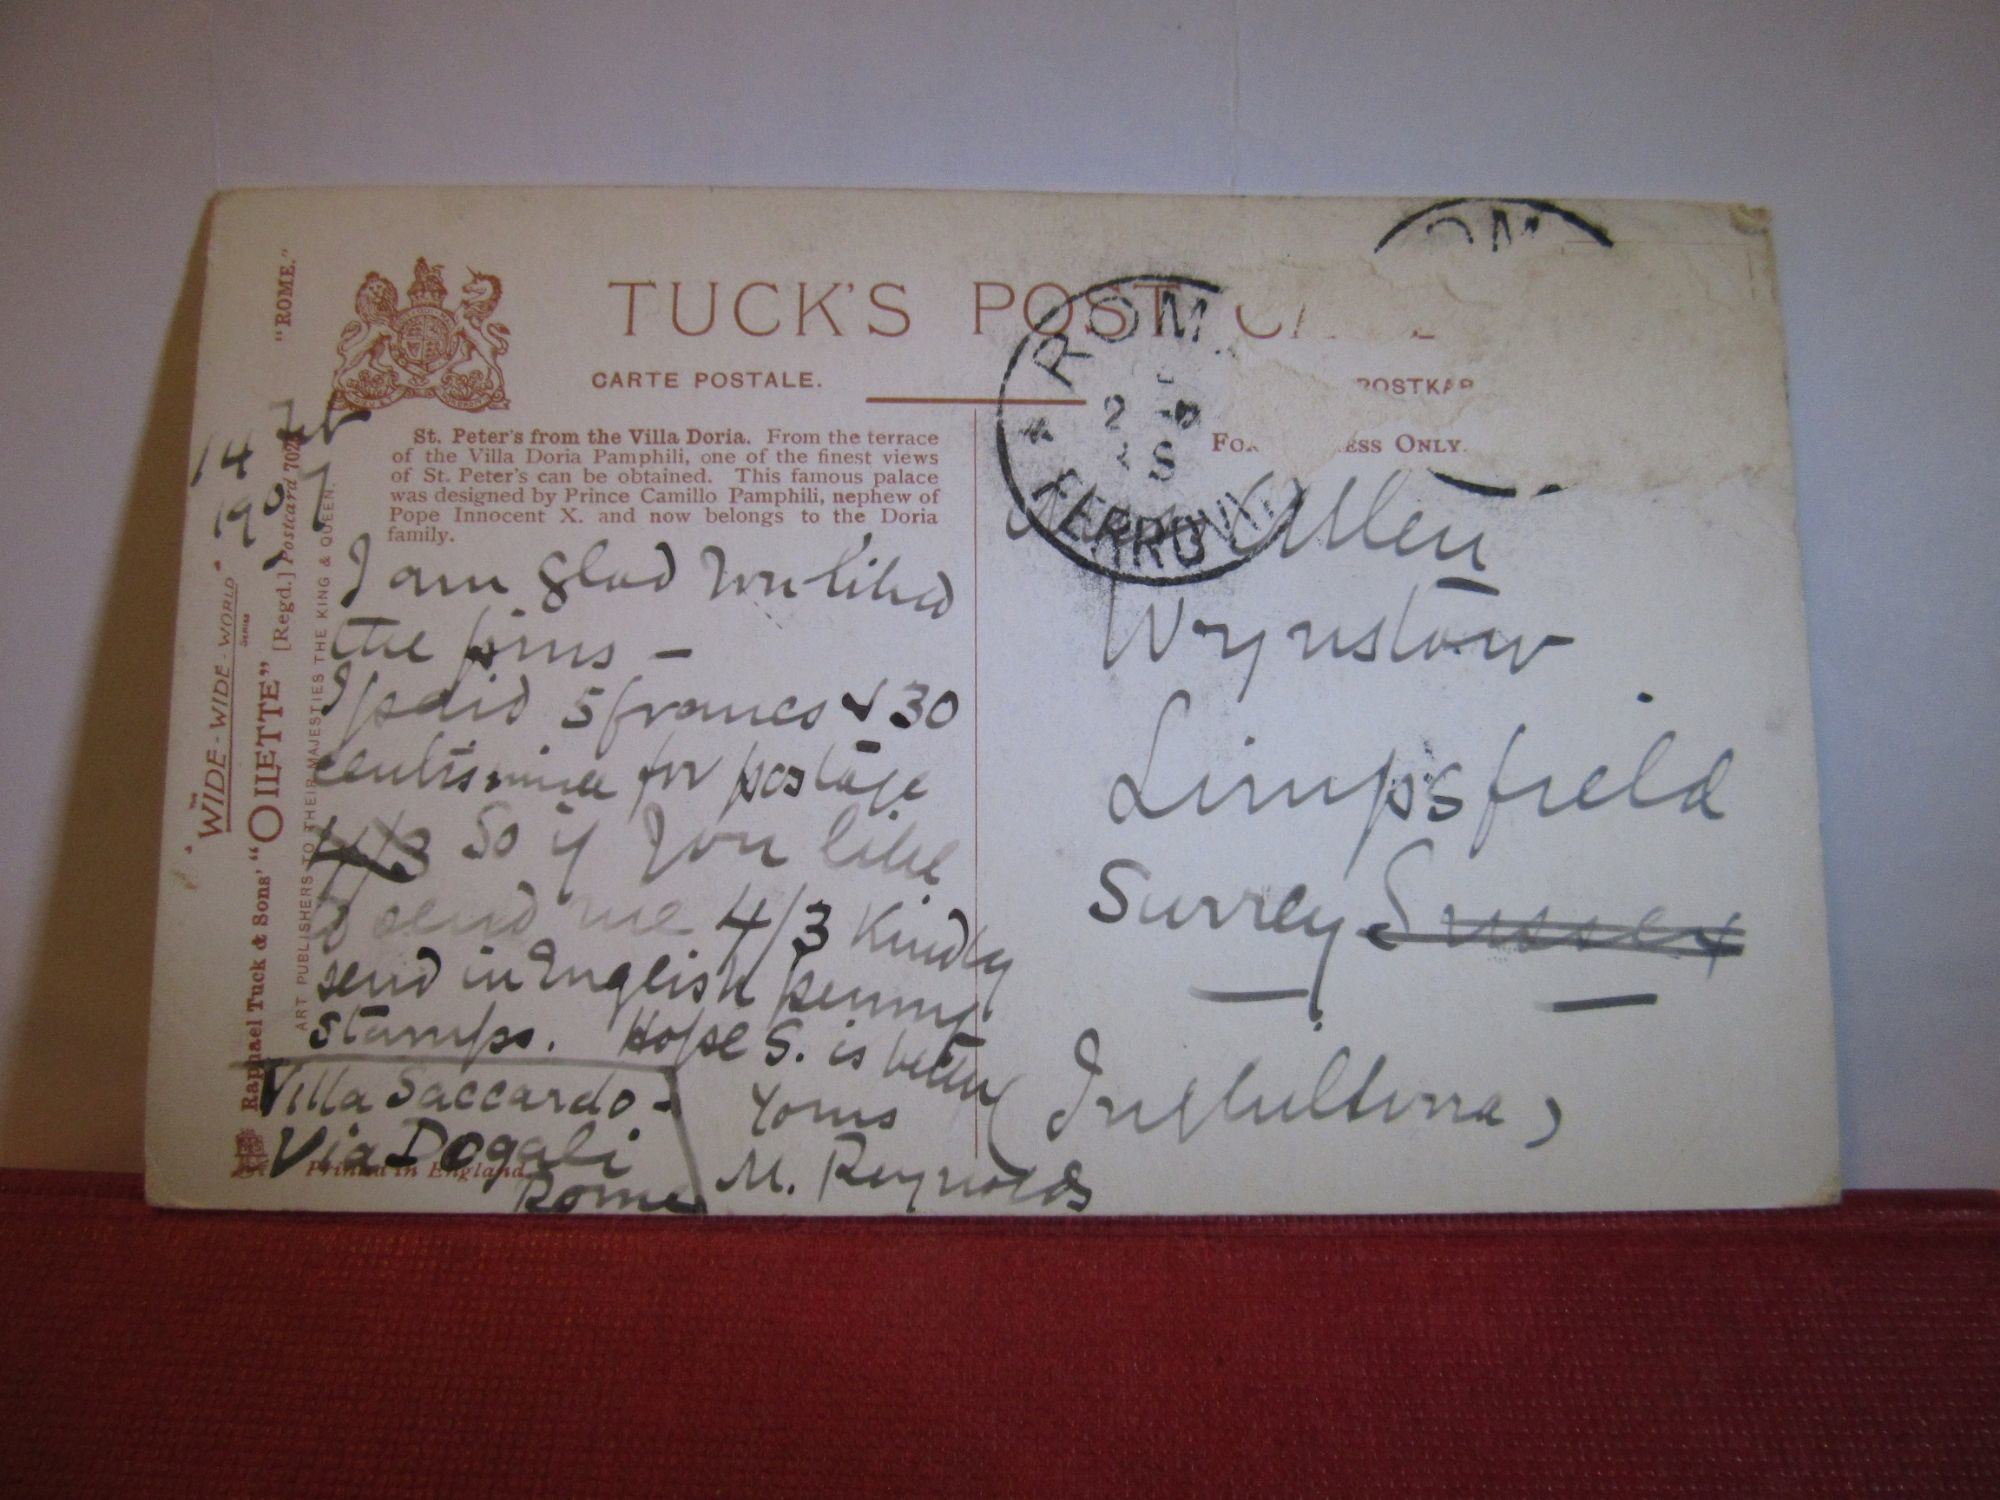 "ROME."
TUCK'S POST
CARTE POSTALE.
FERROVIA
St. Peter's from the Villa Doria. From the terrace
of the Villa Doria Pamphili, one of the finest views
of St. Peter's can be obtained. This famous palace
was designed by Prince Camillo Pamphili, nephew of
Pope Innocent X. and now belongs to the Doria
family.
THE
"WIDE-WIDE-WORLD"
SERIES
Raphael Tuck & Sons' "OILETTE" [Regd.] Postcard 702
ART PUBLISHERS TO THEIR MAJESTIES THE KING & QUEEN.
Printed in England
14 Feb
1907
I am glad you liked
the pins –
I paid 5 francs & 30
centimes for postage
4/3 So if you like
to send me 4/3 Kindly
send in English penny
stamps. Hope S. is better
Yours
M. Reynolds
Villa Saccardo -
Via Dogali
Rome
Allen
Wynstow
Limpsfield
Surrey Sussex
(Inghilterra)
ESS ONLY.